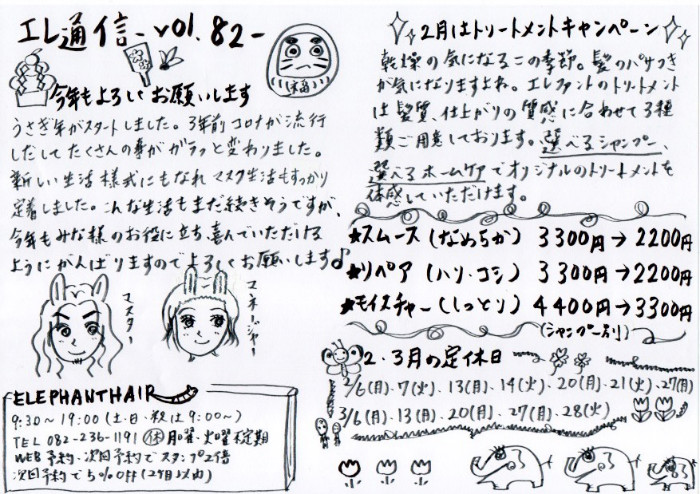 エレ通信 - vol. 82 -
今年もよろしくお願いします
うさぎ年がスタートしました。3年前コロナが流行
しだしてたくさんの事がガラッと変わりました。
新しい生活様式にもなれマスク生活もすっかり
定着しました。こんな生活もまだ続きそうですが、
今年もみな様のお役に立ち、喜んでいただける
ようにがんばりますのでよろしくお願いします♪
マスター
マネージャー
ELEPHANTHAIR
9:30~19:00(土・日・祝は9:00~)
TEL 082-236-1191 ㊡月曜・火曜不定期
WEB予約・次回予約でスタンプ2倍
次回予約で5%OFF(2ヶ月以内)
2月はトリートメントキャンペーン
乾燥の気になるこの季節。髪のパサつき
が気になりますよね。エレファントのトリートメント
は髪質、仕上がりの質感に合わせて3種
類ご用意しております。選べるシャンプー、
選べるホームケアでオリジナルのトリートメントを
体感していただけます。
★スムース(なめらか) 3300円→2200円
★リペア(ハリ・コシ) 3300円→2200円
★モイスチャー(しっとり) 4400円→3300円
(シャンプー別)
2・3月の定休日
2/6(月)、7(火)、13(月)、14(火)、20(月)、21(火)、27(月)
3/6(月)、13(月)、20(月)、27(月)、28(火)